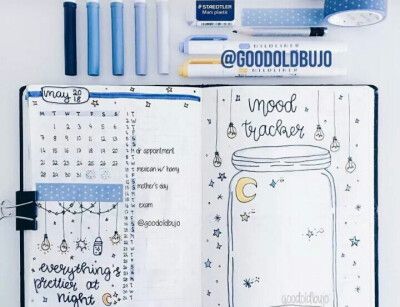 STAEDTLER
Mars plastic
MILDLINER
@GOODOLDBUJO
MILDLINER
may 20
18
M T W T F S S
1 2 3 4 5 6
7 8 9 10 11 12 13
14 15 16 17 18 19 20
21 22 23 24 25 26 27
28 29 30 31
dr appointment
mexican w/ harry
mother's day
exam
@goodoldbujo
everything's
prettier at
night
mood
tracker
goodoldbujo